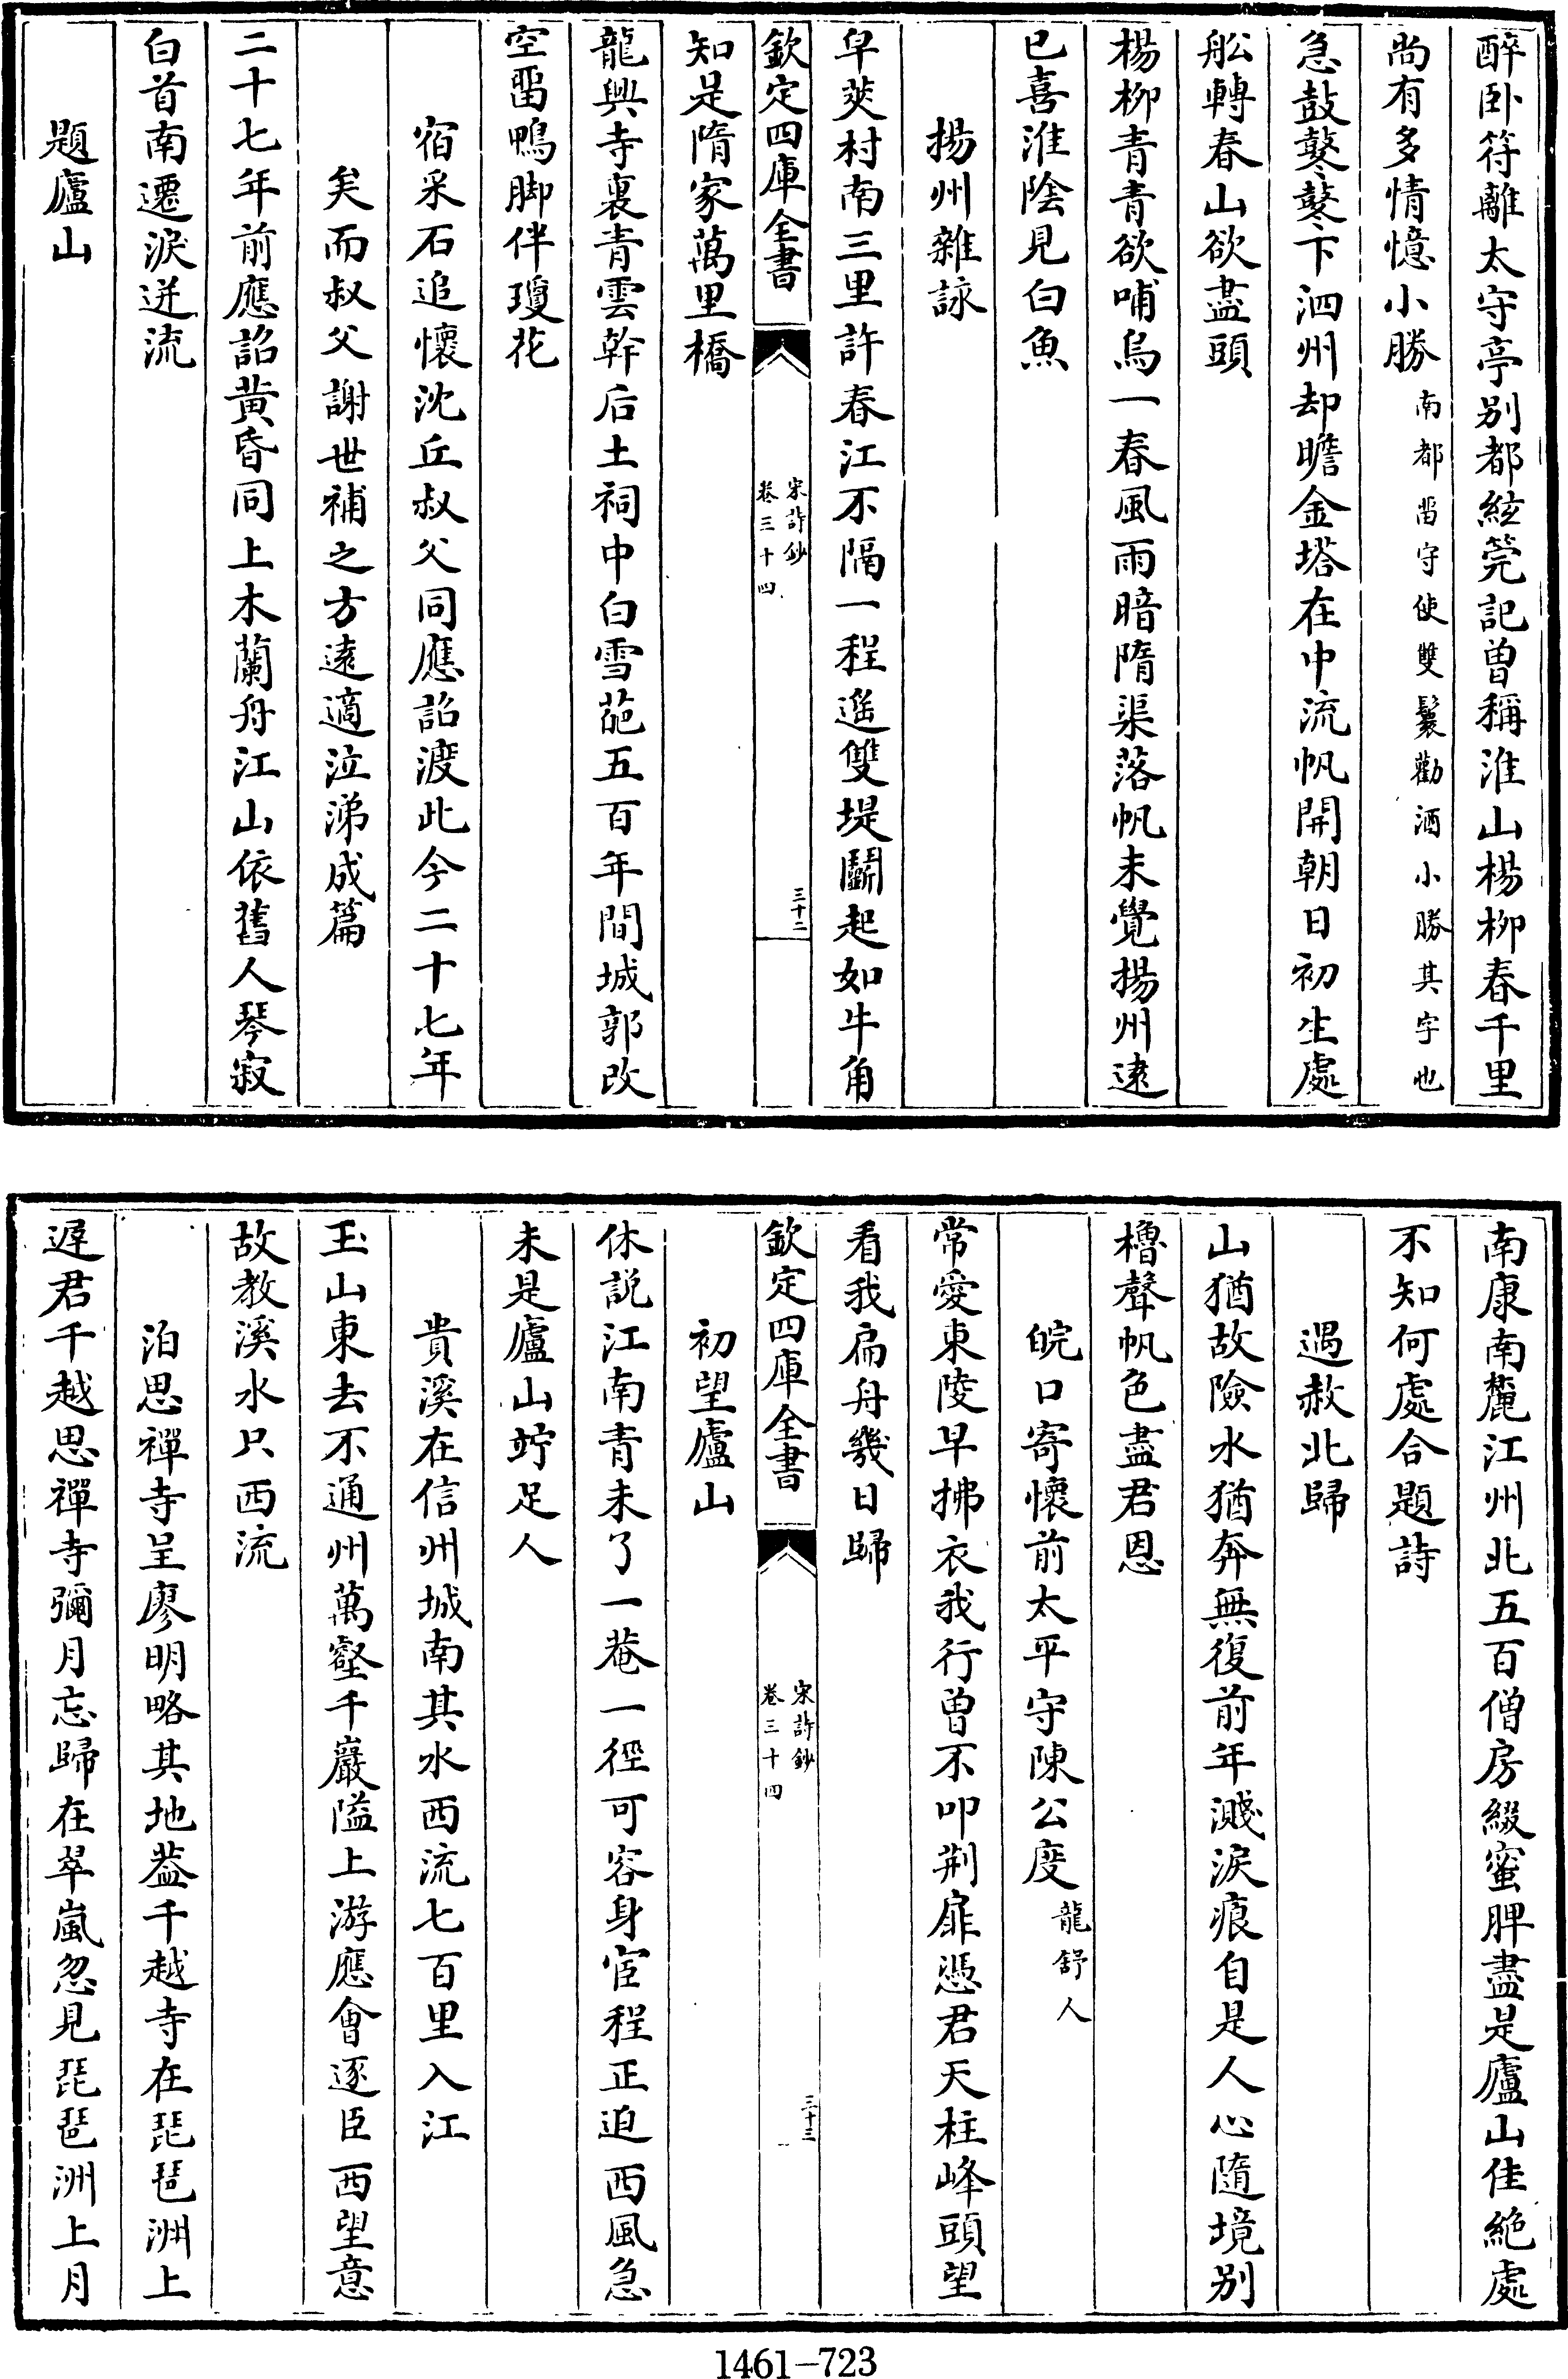 醉卧符離太守亭别都絃筦記曾稱淮山楊柳春千里
尚有多情憶小勝南都畱守使雙鬟勸酒小勝其字也
急鼓鼕鼕下泗州却瞻金塔在中流帆開朝日初生處
舩轉春山欲盡頭
楊柳青青欲哺烏一春風雨暗隋渠落帆未覺揚州逺
已喜淮陰見白魚
揚州雜詠
皁莢村南三里許春江不隔一程遥雙堤鬬起如牛角
欽定四庫全書
宋詩鈔
卷三十四
三十二
知是隋家萬里橋
龍興寺裏青雲幹后土祠中白雪葩五百年間城郭改
空畱鴨脚伴瓊花
宿采石追懷沈丘叔父同應詔渡此今二十七年
矣而叔父謝世補之方逺適泣涕成篇
二十七年前應詔黄昏同上木蘭舟江山依舊人琴寂
白首南遷淚迸流
題廬山
南康南麓江州北五百僧房綴蜜脾盡是廬山佳絶處
不知何處合題詩
遇赦北歸
山猶故險水猶奔無復前年濺淚痕自是人心隨境别
櫓聲帆色盡君恩
皖口寄懷前太平守陳公度龍舒人
常愛東陵早拂衣我行曾不叩荆扉憑君天柱峰頭望
看我扁舟幾日歸
欽定四庫全書
宋詩鈔
卷三十四
三十三
初望廬山
休説江南青未了一菴一徑可容身宦程正迫西風急
未是廬山竚足人
貴溪在信州城南其水西流七百里入江
玉山東去不通州萬壑千巖隘上游應會逐臣西望意
故教溪水只西流
泊思禪寺呈廖明略其地葢千越寺在琵琶洲上
遲君千越思禪寺彌月忘歸在翠嵐忽見琵琶洲上月
1461-723